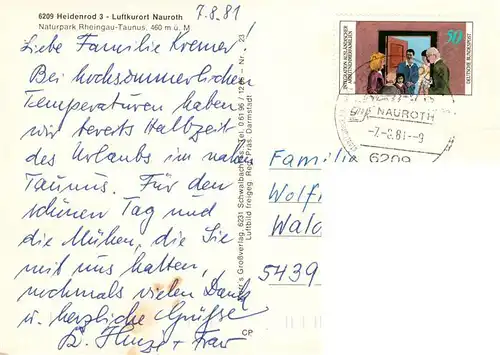 6209 Heidenrod 3 - Luftkurort Nauroth
Naturpark Rheingau-Taunus, 460 m ü. M
7.8.81
Liebe Familie Kremer!
Bei hochsommerlichen
Temperaturen haben
wir bereits Halbzeit
des Urlaubs im nahen
Taunus. Für den
schönen Tag und
die Mühen, die Sie
mit uns hatten,
nochmals vielen Dank
u. herzliche Grüsse
+ Frau
Großverlag, 6231 Schwalbach
Luftbild freigeg. Reg. Präs. Darmstadt
CP
INTEGRATION AUSLÄNDISCHER
ARBEITNEHMERFAMILIEN
50
DEUTSCHE BUNDESPOST
NAUROTH
-7.-8.81.-9
6209
Familie
Wolf
Wal
5439